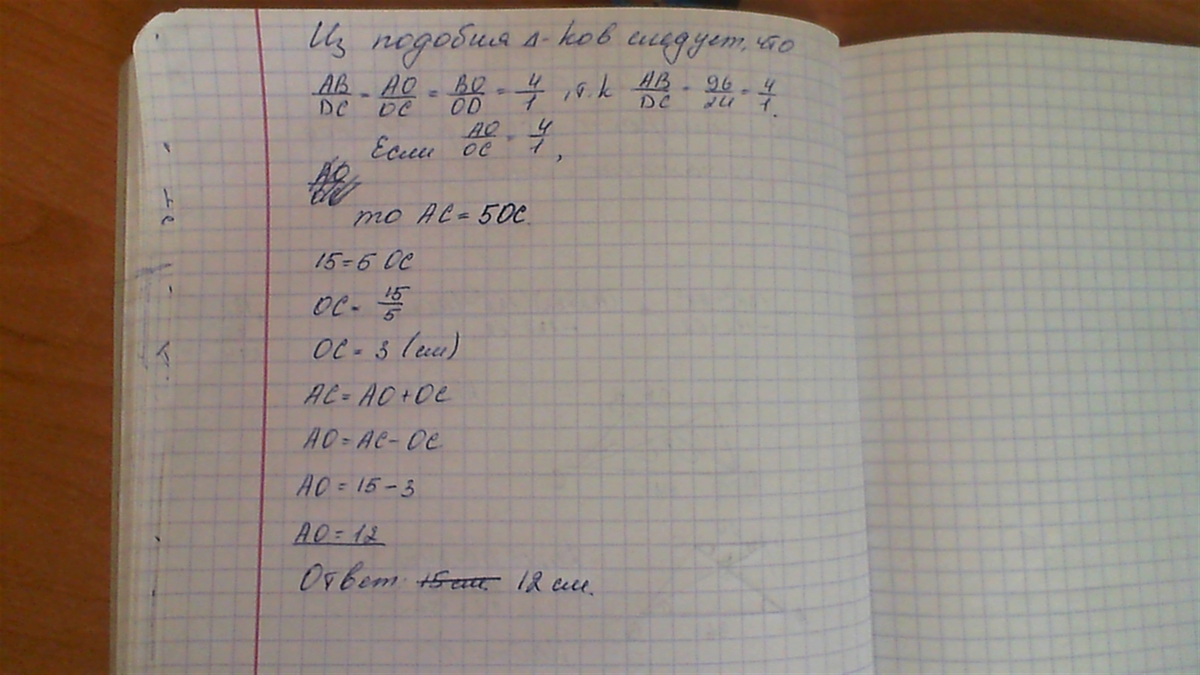 Из подобия Δ-ков следует, что
AB/DC = AO/OC = BO/OD = 4/1, т.к AB/DC = 96/24 = 4/1.
Если AO/OC = 4/1,
то AC = 5OC.
15 = 5 OC
OC = 15/5
OC = 3 (см)
AC = AO + OC
AO = AC - OC
AO = 15 - 3
AO = 12
Ответ 15 см. 12 см.